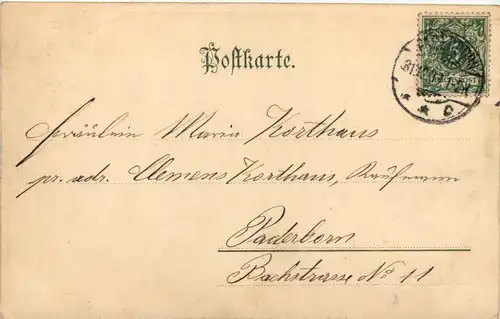 Postkarte.
Fräulein Maria Korthaus
pr. adr. Clemens Korthaus, Kaufmann
Paderborn
Bachstrasse No 11